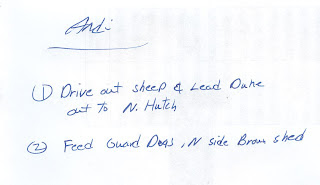 Andi
① Drive out sheep & Lead Duke
out to N. Hutch
② Feed Guard Dogs, N side Brown shed